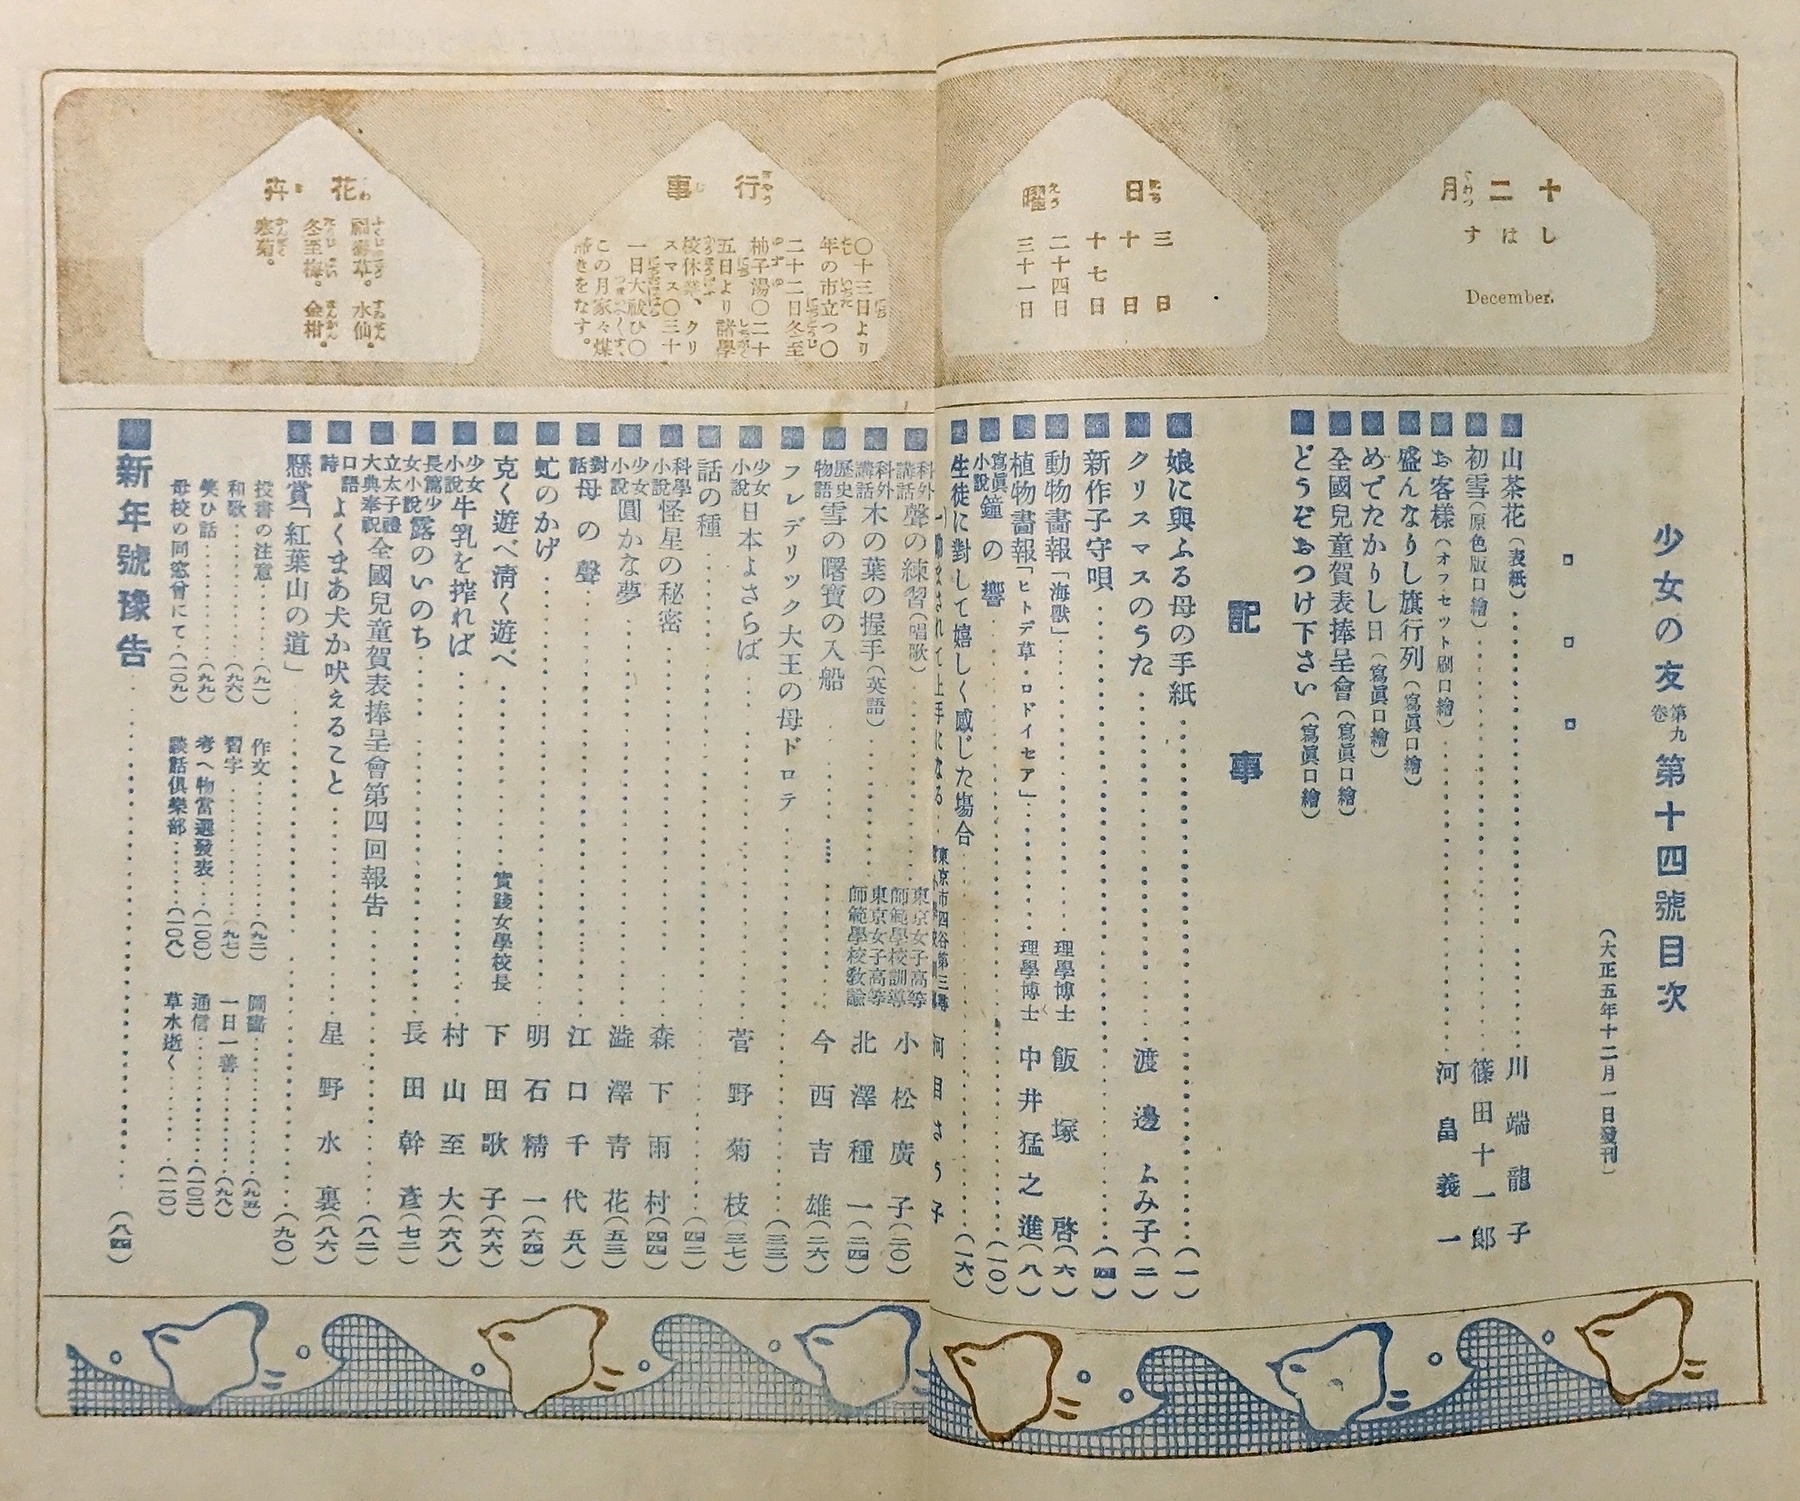 十二月
しはす
December.
日曜
三日
十日
十七日
二十四日
三十一日
行事
〇十三日より
年の市立つ〇
二十二日冬至
柚子湯〇二十
五日より諸學
校休業、クリ
スマス〇三十
一日大祓ひ〇
この月家々煤
掃きをなす。
花卉
福壽草。水仙。
冬至梅。金柑。
寒菊。
少女の友 第九卷 第十四號目次
(大正五年十二月一日發刊)
山茶花(表紙) 川端龍子
初雪(原色版口繪) 篠田十一郎
お客樣(オフセット刷口繪) 河畠義一
盛んなりし旗行列(寫眞口繪)
めでたかりし日(寫眞口繪)
全國兒童賀表捧呈會(寫眞口繪)
どうぞおつけ下さい(寫眞口繪)
記事
娘に與ふる母の手紙 (一)
クリスマスのうた 渡邊ふみ子(二)
新作子守唄 (四)
動物畵報「海獸」 理學博士 飯塚啓(六)
植物畵報「ヒトデ草・ロドイセア」 理學博士 中井猛之進(八)
寫眞小說 鐘の響 (一〇)
生徒に對して嬉しく感じた塲合 (一六)
東京市四谷第三尋
科外講話 聲の練習(唱歌) 東京女子高等師範學校訓導 小松廣子(二〇)
科外講話 木の葉の握手(英語) 東京女子高等師範學校敎諭 北澤種一(二四)
歷史物語 雪の曙寶の入船 今西吉雄(二六)
フレデリック大王の母ドロテ (三三)
少女小說 日本よさらば 菅野菊枝(三七)
話の種 (四二)
科學小說 怪星の秘密 森下雨村(四四)
少女小說 圓かな夢 澁澤靑花(五三)
對話 母の聲 江口千代(五八)
虹のかげ 明石精一(六四)
克く遊べ淸く遊べ 實踐女學校長 下田歌子(六六)
少女小說 牛乳を搾れば 村山至大(六八)
長篇少女小說 露のいのち 長田幹彥(七二)
立太子禮大典奉祝 全國兒童賀表捧呈會第四回報告 (八二)
口語詩 よくまあ犬か吠えること 星野水裏(八六)
懸賞「紅葉山の道」 (九〇)
投書の注意(九一) 作文(九二) 圖畵(九五)
和歌(九六) 習字(九七) 一日一善(九八)
笑ひ話(九九) 考へ物當選發表(一〇〇) 通信(一〇二)
母校の同窓會にて(一〇九) 談話俱樂部(一〇八) 草水逝く(一一〇)
新年號豫告 (八四)